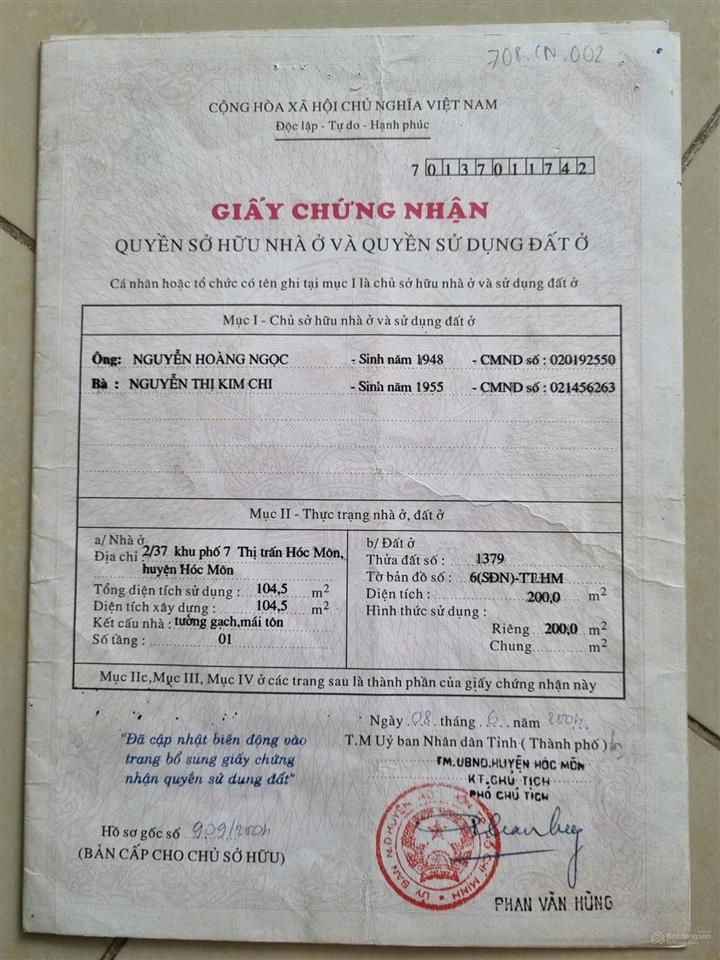 708.CN.002
CỘNG HÒA XÃ HỘI CHỦ NGHĨA VIỆT NAM
Độc lập - Tự do - Hạnh phúc
7 0 1 3 7 0 1 1 7 4 2
GIẤY CHỨNG NHẬN
QUYỀN SỞ HỮU NHÀ Ở VÀ QUYỀN SỬ DỤNG ĐẤT Ở
Cá nhân hoặc tổ chức có tên ghi tại mục I là chủ sở hữu nhà ở và sử dụng đất ở
Mục I - Chủ sở hữu nhà ở và sử dụng đất ở
Ông: NGUYỄN HOÀNG NGỌC - Sinh năm 1948 - CMND số : 020192550
Bà : NGUYỄN THỊ KIM CHI - Sinh năm 1955 - CMND số : 021456263
Mục II - Thực trạng nhà ở, đất ở
a/ Nhà ở
Địa chỉ 2/37 khu phố 7 Thị trấn Hóc Môn,
huyện Hóc Môn
Tổng diện tích sử dụng : 104,5 m2
Diện tích xây dựng : 104,5 m2
Kết cấu nhà : tường gạch,mái tôn
Số tầng : 01
b/ Đất ở
Thửa đất số : 1379
Tờ bản đồ số : 6(SĐN)-TT.HM
Diện tích : 200,0 m2
Hình thức sử dụng :
Riêng 200,0 m2
Chung m2
Mục IIc,Mục III, Mục IV ở các trang sau là thành phần của giấy chứng nhận này
"Đã cập nhật biến động vào
trang bổ sung giấy chứng
nhận quyền sử dụng đất"
Hồ sơ gốc số 909/2004
(BẢN CẤP CHO CHỦ SỞ HỮU)
Ngày 08 tháng 6 năm 2004
T.M Uỷ ban Nhân dân Tỉnh ( Thành phố )
TM.UBND.HUYỆN HÓC MÔN
KT.CHỦ TỊCH
PHÓ CHỦ TỊCH
PHAN VĂN HÙNG
Batdongsan